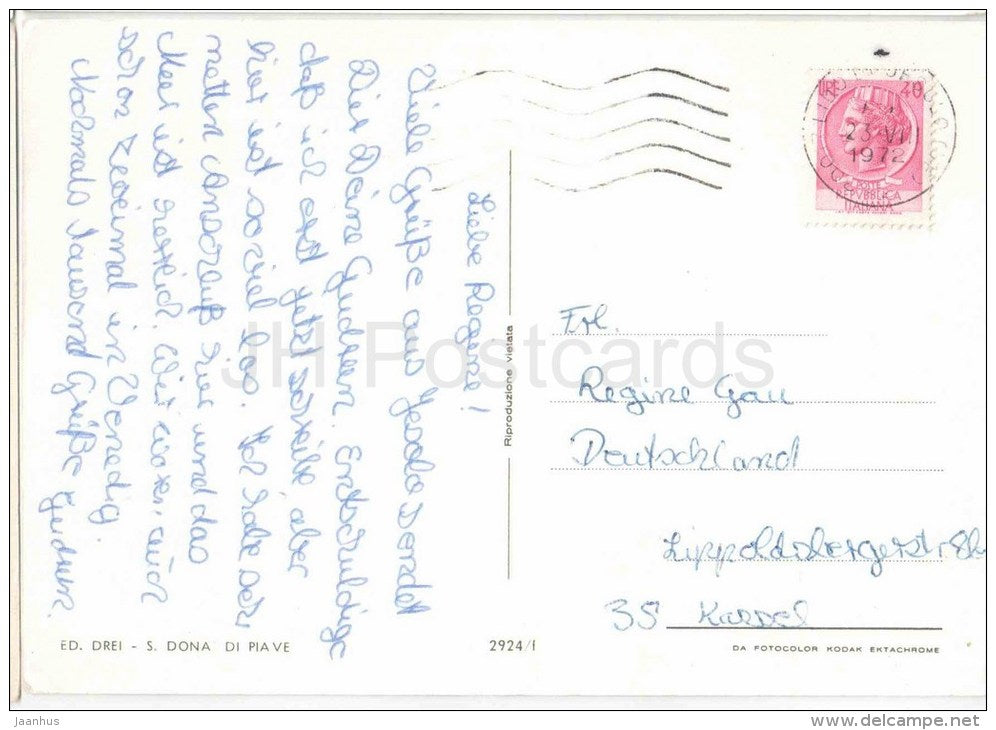 Liebe Regine!
Viele Grüße aus Jesolo sendet
Dir Deine Gudrun. Entschuldige
daß ich erst jetzt schreibe, aber
hier ist soviel los. Ich habe sehr
netten Anschluß hier und das
Meer ist herrlich. Wir waren auch
schon zweimal in Venedig.
Nochmals tausend Grüße Gudrun.
ED. DREI - S. DONA' DI PIAVE
2924/f
Riproduzione vietata
LIRE 40
23 VI
1972
POSTE
REPVBBLICA
ITALIANA
Frl.
Regine Gau
Deutschland
Lippoldsbergerstr. 8b
35 Kassel
DA FOTOCOLOR KODAK EKTACHROME
JH Postcards
Jaanhus
www.delcampe.net